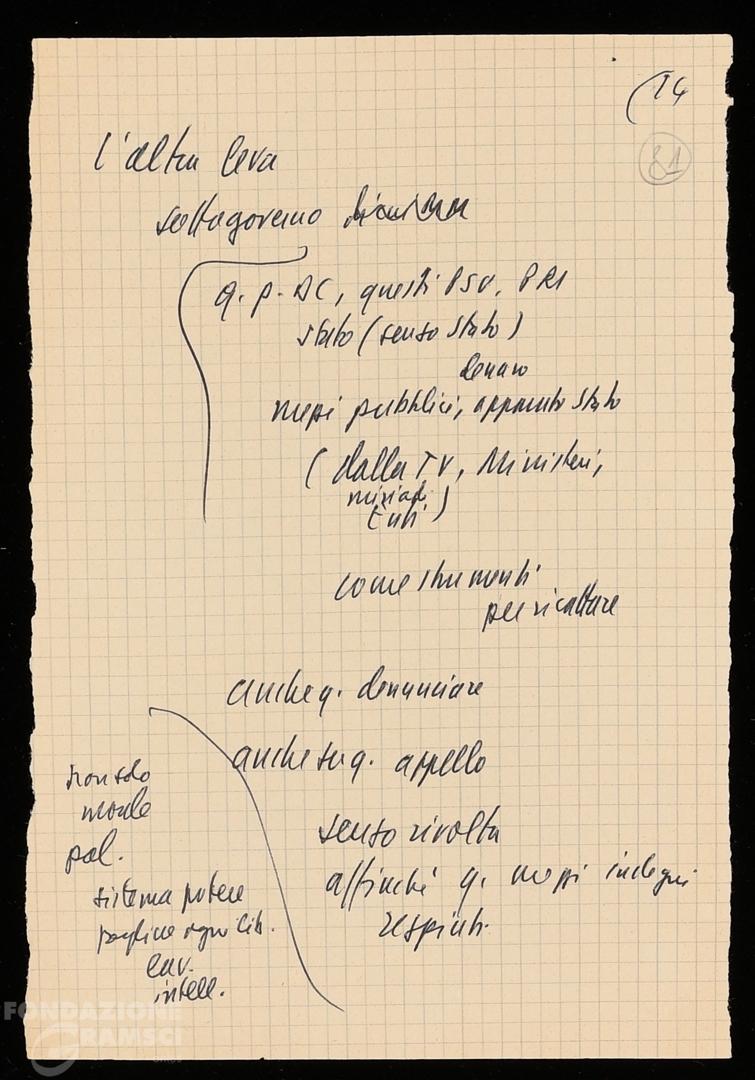 (14
81
l'altra leva
sottogoverno
q. p. DC, questi PSU, PRI
stato (senso stato)
denaro
mezzi pubblici, apparato stato
(dalla TV, Ministeri,
miriadi
Enti)
come strumenti
per ricattare
anche q. denunciare
anche su q. appello
senso rivolta
affinché q. mezzi indegni
respinti.
non solo
morale
pol.
sistema potere
toglie ogni lib.
lav.
intell.
FONDAZIONE
GRAMSCI